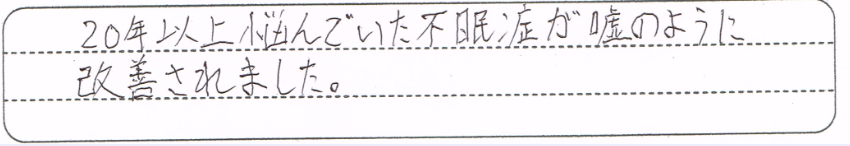 20年以上悩んでいた不眠症が嘘のように
改善されました。